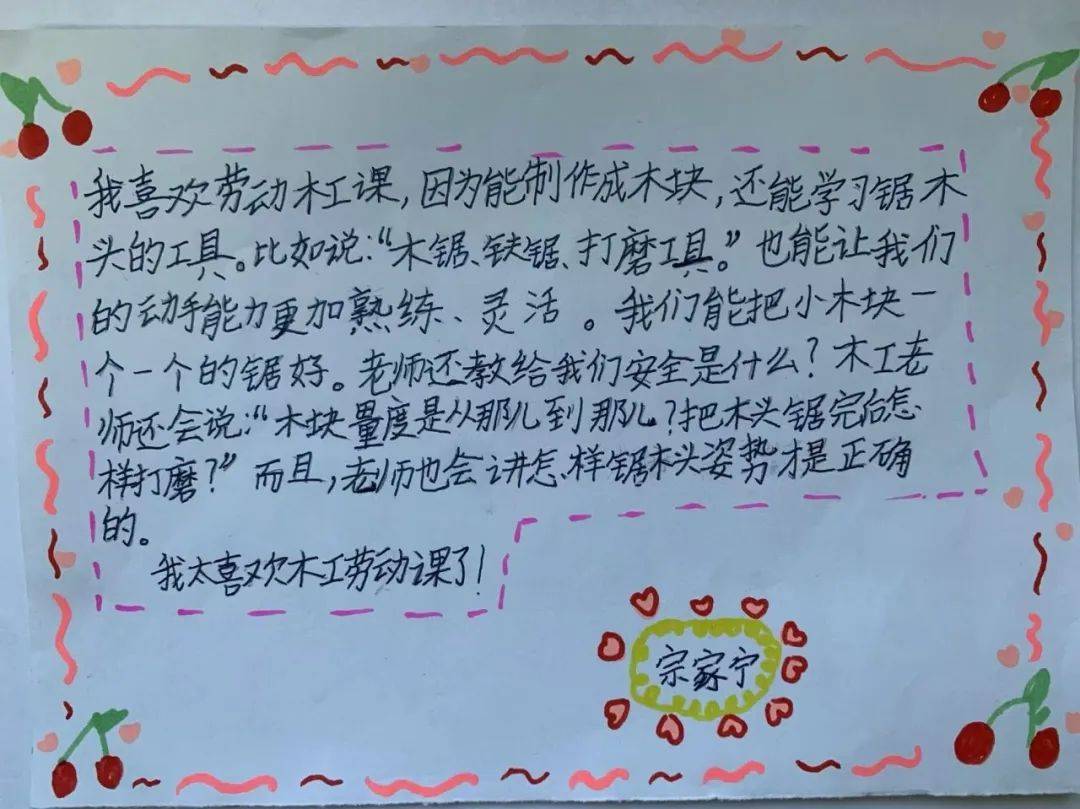 我喜欢劳动木工课,因为能制作成木块,还能学习锯木
头的工具。比如说:“木锯、铁锯、打磨工具。”也能让我们
的动手能力更加熟练、灵活。我们能把小木块一
个一个的锯好。老师还教给我们安全是什么?木工老
师还会说:“木块量度是从那儿到那儿?把木头锯完后怎
样打磨?”而且,老师也会讲怎样锯木头姿势才是正确
的。
我太喜欢木工劳动课了!
宗家宁